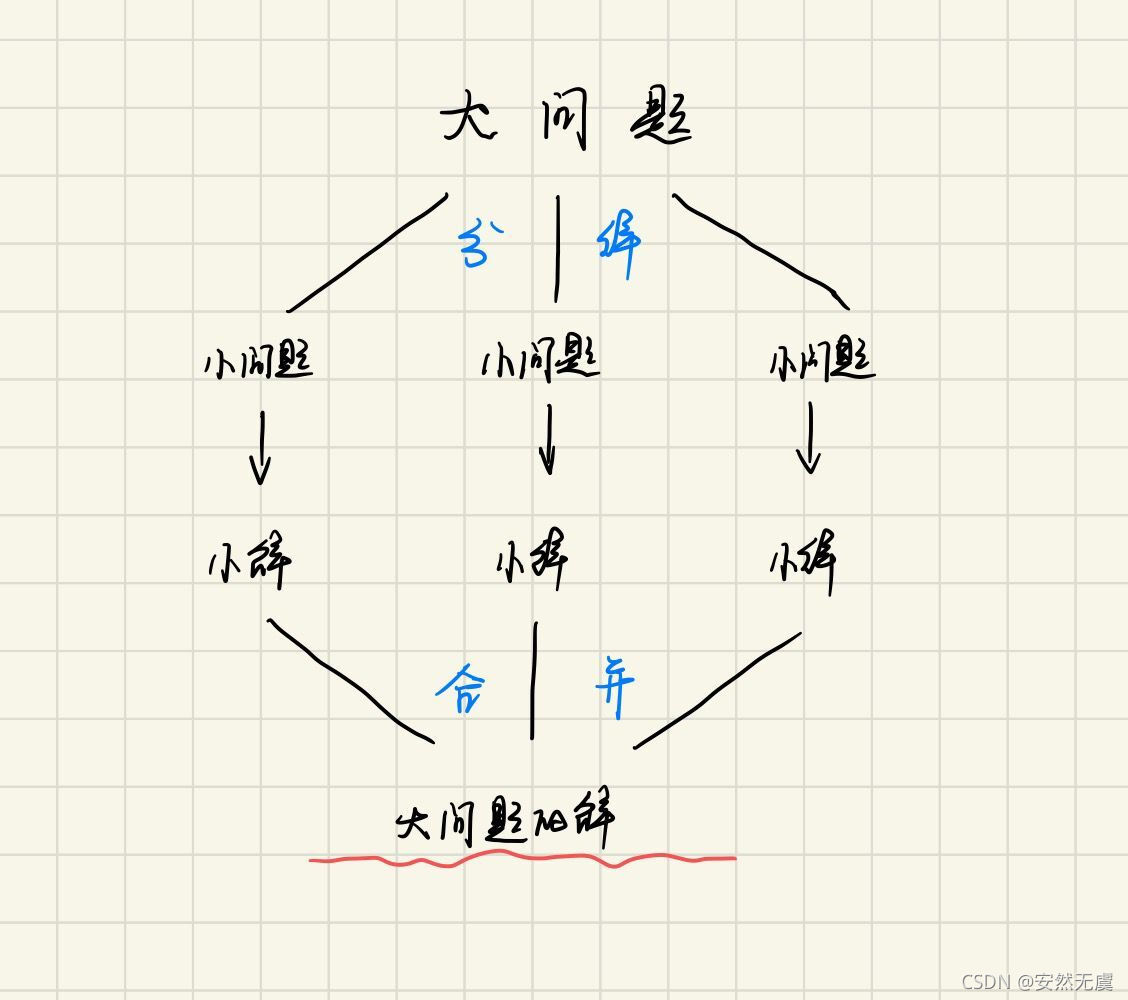 大问题
分解
小问题 小问题 小问题
小解 小解 小解
合并
大问题的解
CSDN @安然无虞